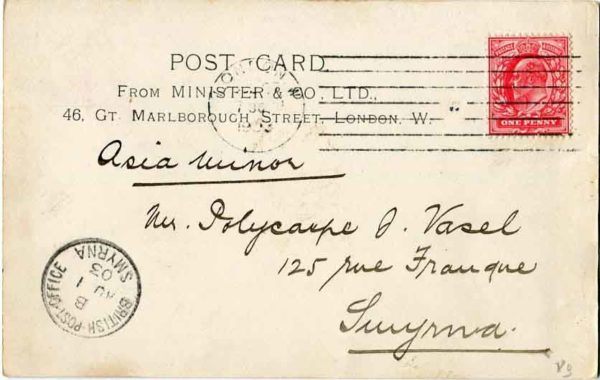 POST CARD
FROM MINISTER & CO., LTD.,
46, GT MARLBOROUGH STREET, LONDON, W.
POSTAGE REVENUE
ONE PENNY
LONDON
1903
Asia Minor
Mr. Polycarpe J. Vasel
125 rue Franque
Smyrna.
BRITISH POST OFFICE
B
AU 1
03
SMYRNA